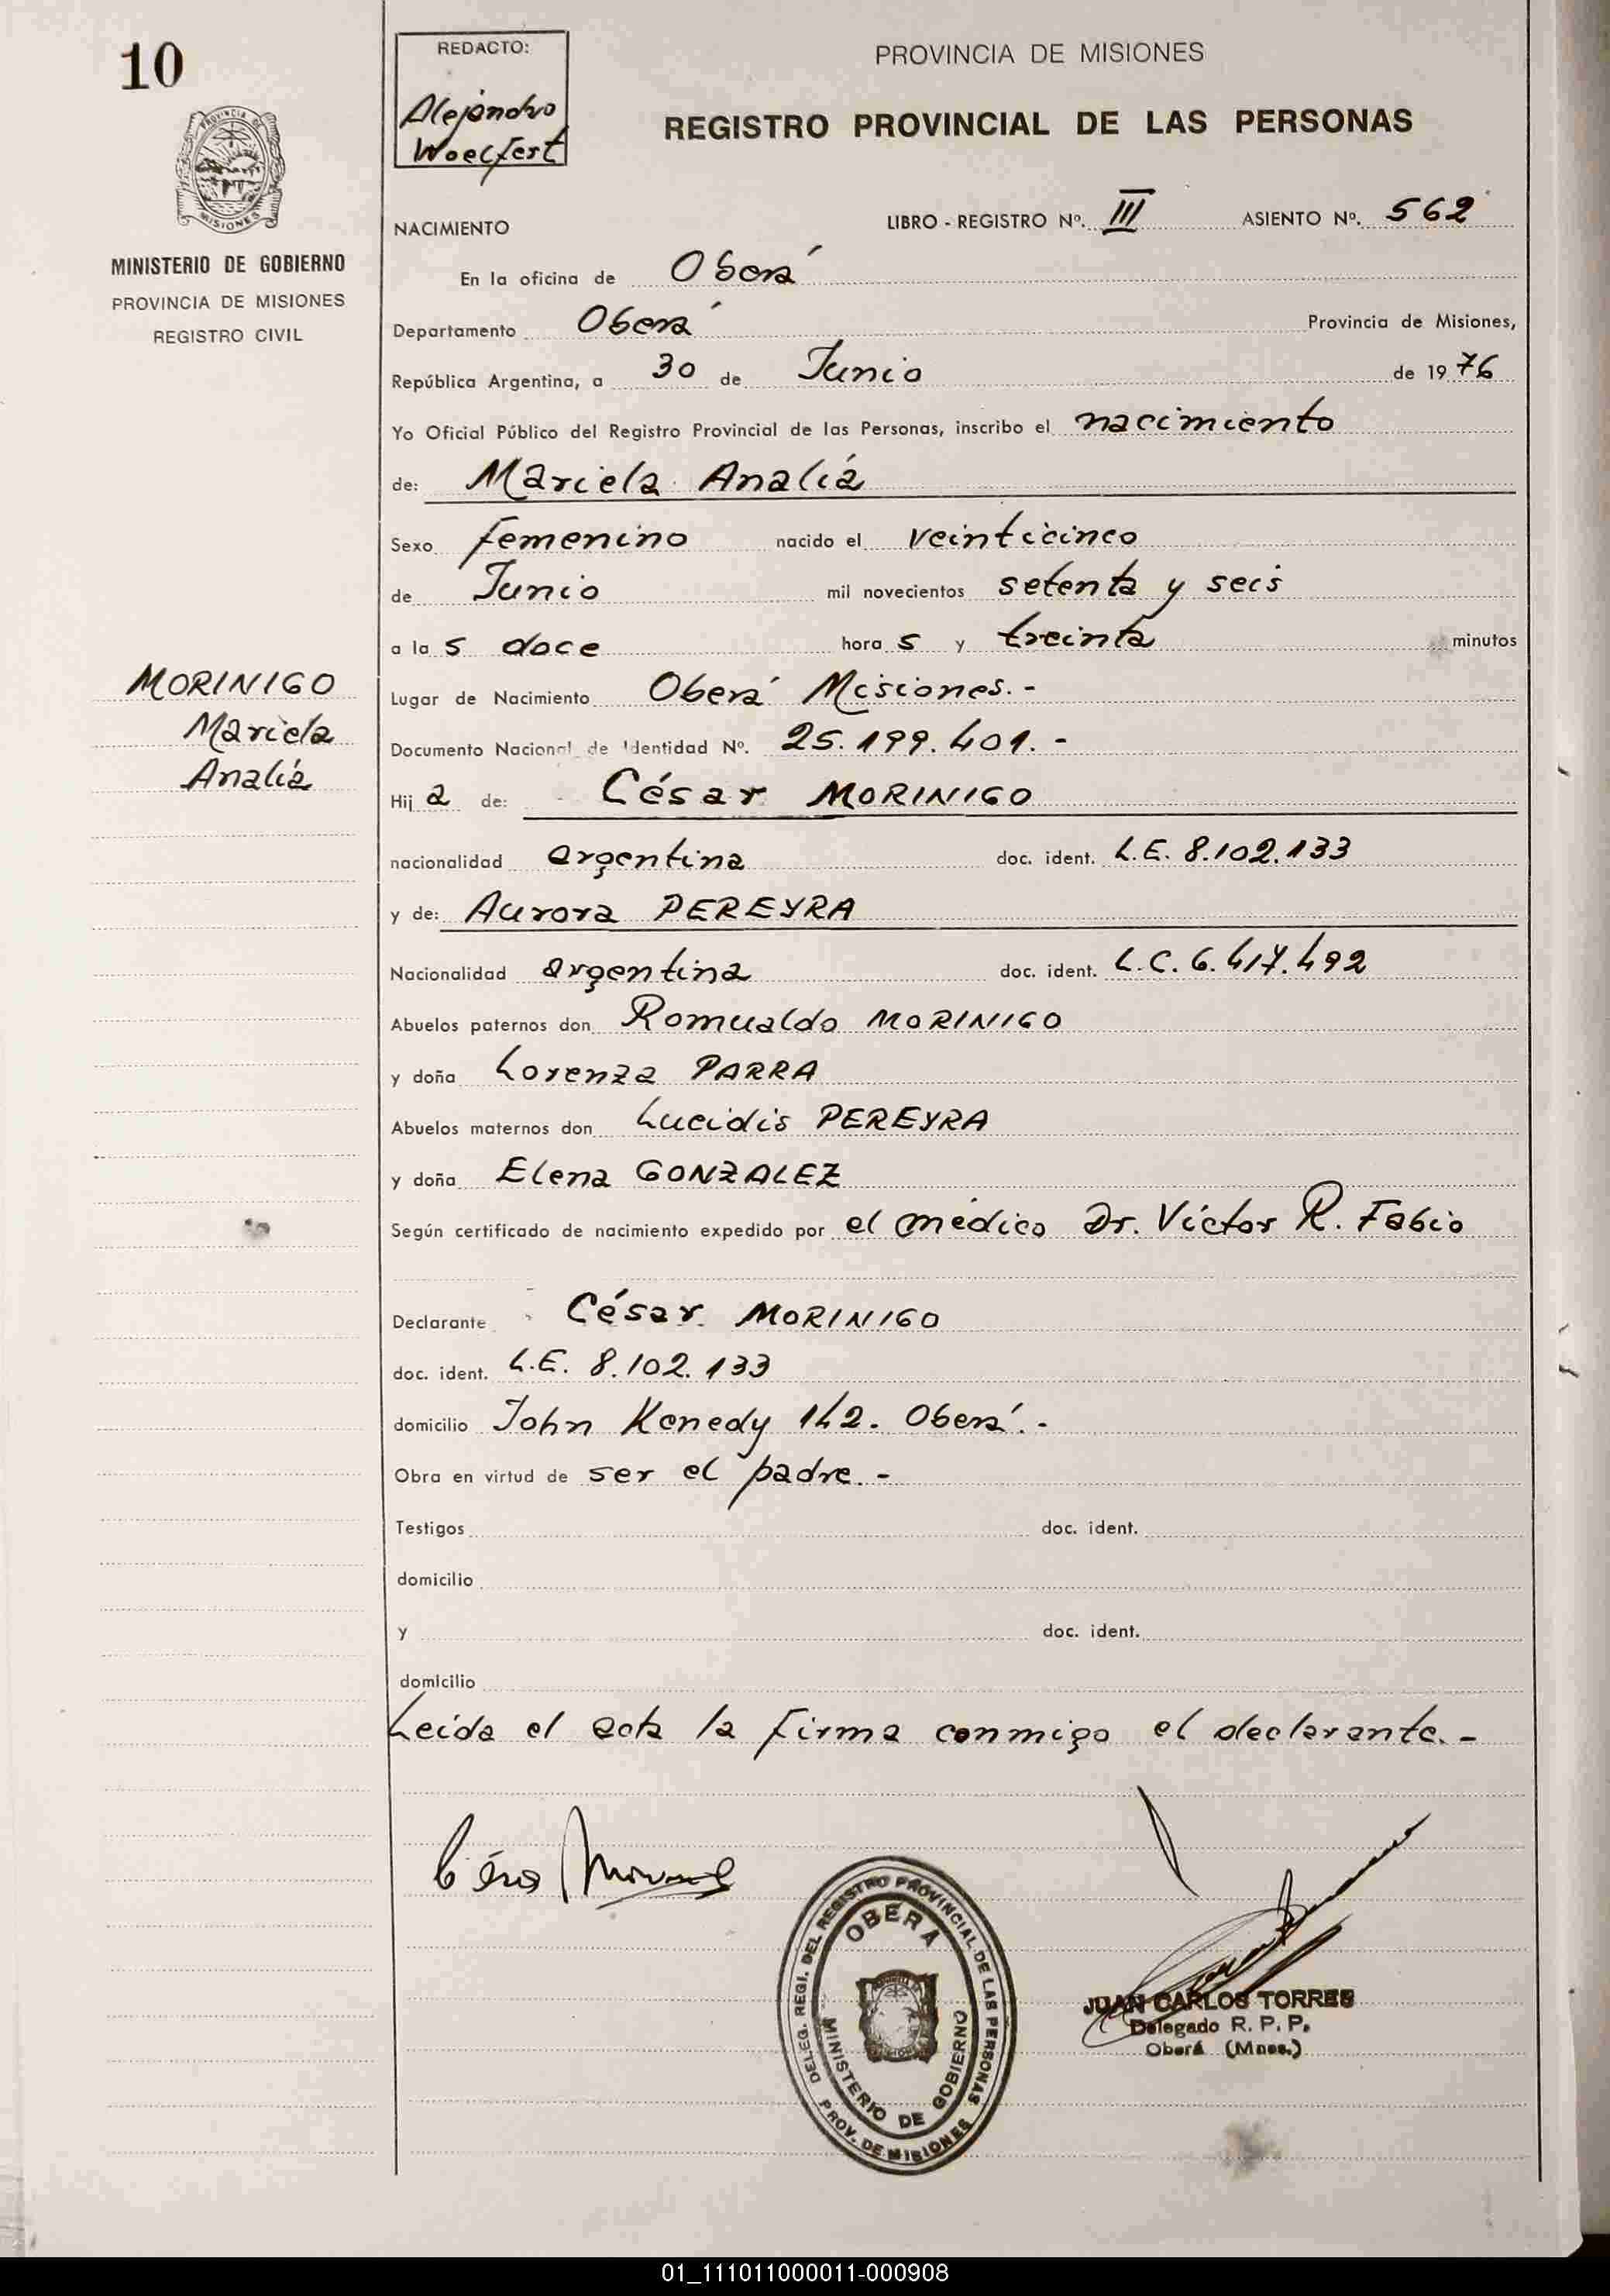 10
REDACTO:
Alejandro
Woelfert
PROVINCIA DE MISIONES
REGISTRO PROVINCIAL DE LAS PERSONAS
MINISTERIO DE GOBIERNO
PROVINCIA DE MISIONES
REGISTRO CIVIL
NACIMIENTO LIBRO - REGISTRO Nº. III ASIENTO Nº. 562
En la oficina de Oberá
Departamento Oberá Provincia de Misiones,
República Argentina, a 30 de Junio de 1976
Yo Oficial Público del Registro Provincial de las Personas, inscribo el nacimiento
de: Mariela Analía
Sexo femenino nacido el veinticinco
de Junio mil novecientos setenta y seis
a las doce horas y treinta minutos
MORINIGO
Mariela
Analía
Lugar de Nacimiento Oberá Misiones.-
Documento Nacional de Identidad Nº. 25.199.401.-
Hija de: César MORINIGO
nacionalidad argentina doc. ident. L.E. 8.102.133
y de: Aurora PEREYRA
Nacionalidad argentina doc. ident. L.C. 6.417.492
Abuelos paternos don Romualdo MORINIGO
y doña Lorenza PARRA
Abuelos maternos don Lucidis PEREYRA
y doña Elena GONZALEZ
Según certificado de nacimiento expedido por el médico Dr. Víctor R. Fabio
Declarante César MORINIGO
doc. ident. L.E. 8.102.133
domicilio John Kenedy 142. Oberá.-
Obra en virtud de ser el padre.-
Testigos doc. ident.
domicilio
y doc. ident.
domicilio
Leída el acta la firma conmigo el declarante.-
DELEG. REGI. DEL REGISTRO PROVINCIAL DE LAS PERSONAS
OBERA
MINISTERIO DE GOBIERNO
PROV. DE MISIONES
JUAN CARLOS TORRES
Delegado R. P. P.
Oberá (Mnes.)
01_111011000011-000908